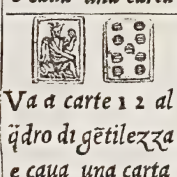 e caua una carta
Va a carte 12 al
q̃dro di gẽtilezza
e caua una carta